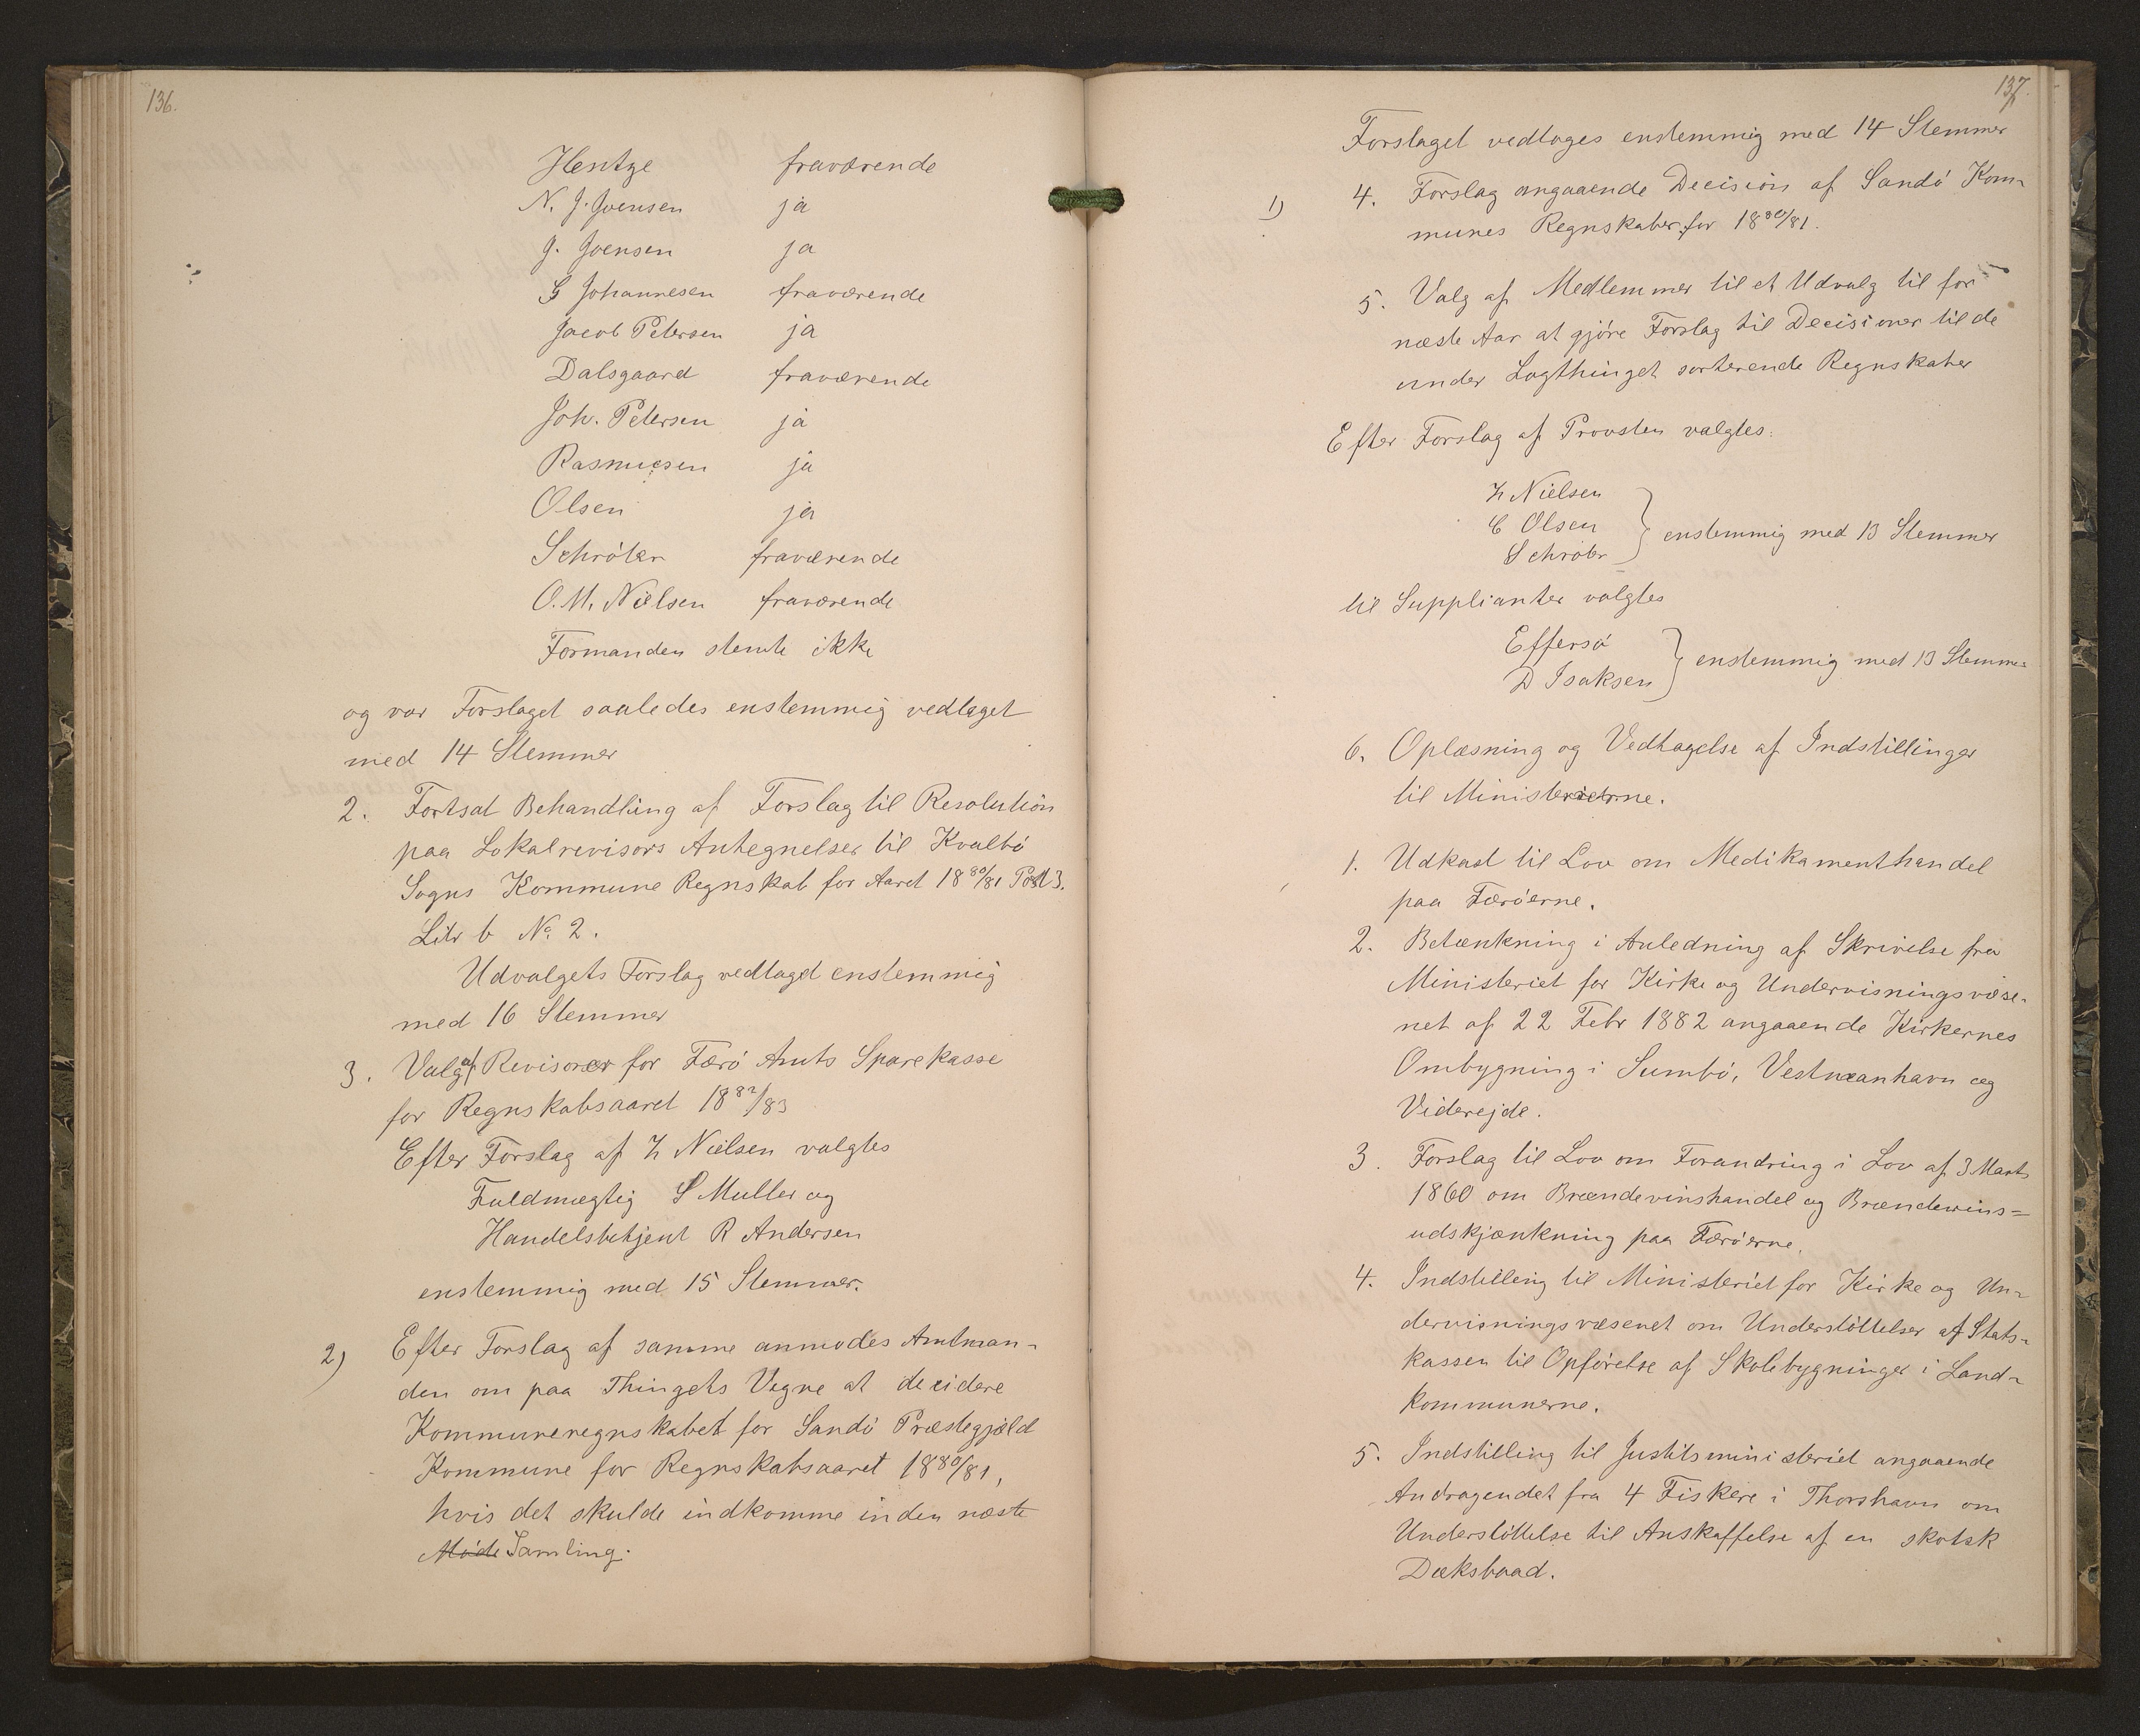 136.
Hentze fraværende
N. J. Joensen ja
J. Joensen ja
G Johannesen fraværende
Jacob Petersen ja
Dalsgaard fraværende
Joh. Petersen ja
Rasmussen ja
Olsen ja
Schröter fraværende
O. M. Nielsen fraværende
Formanden stemte ikke
og var Forslaget saaledes enstemmig vedtaget
med 14 Stemmer
2. Fortsat Behandling af Forslag til Resolution
paa Lokalrevisors Antegnelser til Kvalbö
Sogns Kommune Regnskab for Aaret 18 80/81 Post 3.
Litr b No. 2.
Udvalgets Forslag vedtaget enstemmig
med 16 Stemmer
3. Valg af Revisorer for Færö Amts Sparekasse
for Regnskabsaaret 18 82/83
Efter Forslag af Z Nielsen valgtes
Fuldmægtig S Muller og
Handelsbetjent R Andersen
enstemmig med 15 Stemmer.
2) Efter Forslag af samme anmodes Amtman-
den om paa Thingets Vegne at decidere
Kommuneregnskabet for Sandö Præstegjæld
Kommune for Regnskabsaaret 18 80/81,
hvis det skulde indkomme inden næste
Möde Samling.
137.
Forslaget vedtages enstemmig med 14 Stemmer
1) 4. Forslag angaaende Decision af Sandö Kom-
munes Regnskaber for 18 80/81.
5. Valg af Medlemmer til et Udvalg til for
næste Aar at gjöre Forslag til Decisioner til de
under Lagthinget sorterende Regnskaber
Efter Forslag af Provsten valgtes:
Z Nielsen
C Olsen
Schröter } enstemmig med 13 Stemmer
til Supplianter valgtes
Effersö
D Isaksen } enstemmig med 13 Stemmer
6. Oplæsning og Vedtagelse af Indstillinger
til Ministerierne.
1. Udkast til Lov om Medikamenthandel
paa Færöerne.
2. Betænkning i Anledning af Skrivelse fra
Ministeriet for Kirke og Undervisningsvæse-
net af 22 Febr 1882 angaaende Kirkernes
Ombygning i Sumbö, Vestmanhavn og
Viderejde.
3. Forslag til Lov om Forandring i Lov af 3 Marts
1860 om Brændevinshandel og Brændevins=
udskjænkning paa Færöerne.
4. Indstilling til Ministeriet for Kirke og Un-
dervisningsvæsenet om Understöttelser af Stats-
kassen til Opförelse af Skolebygninger i Land-
kommunerne.
5. Indstilling til Justitsministeriet angaaende
Andragendet fra 4 Fiskere i Thorshavn om
Understöttelse til Anskaffelse af en skotsk
Dæksbaad.